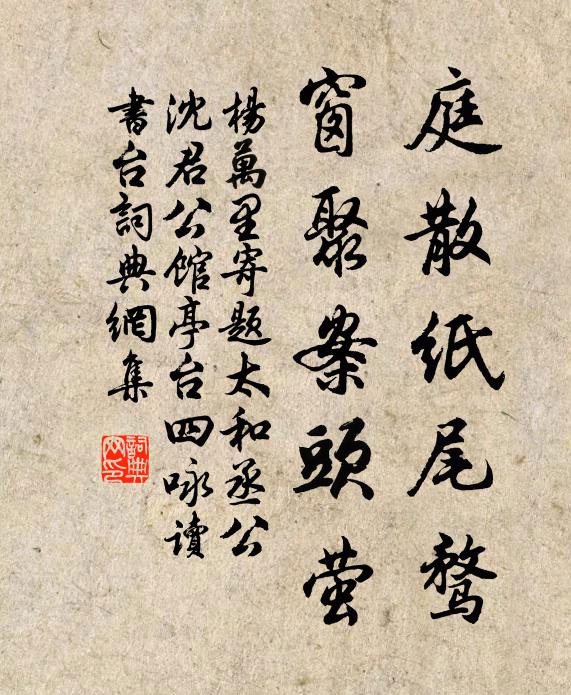 庭散紙尾鶩
窗聚案頭螢
楊萬里寄題太和丞公
沈君公館亭台四咏讀
書台詞典網集
詞典網印